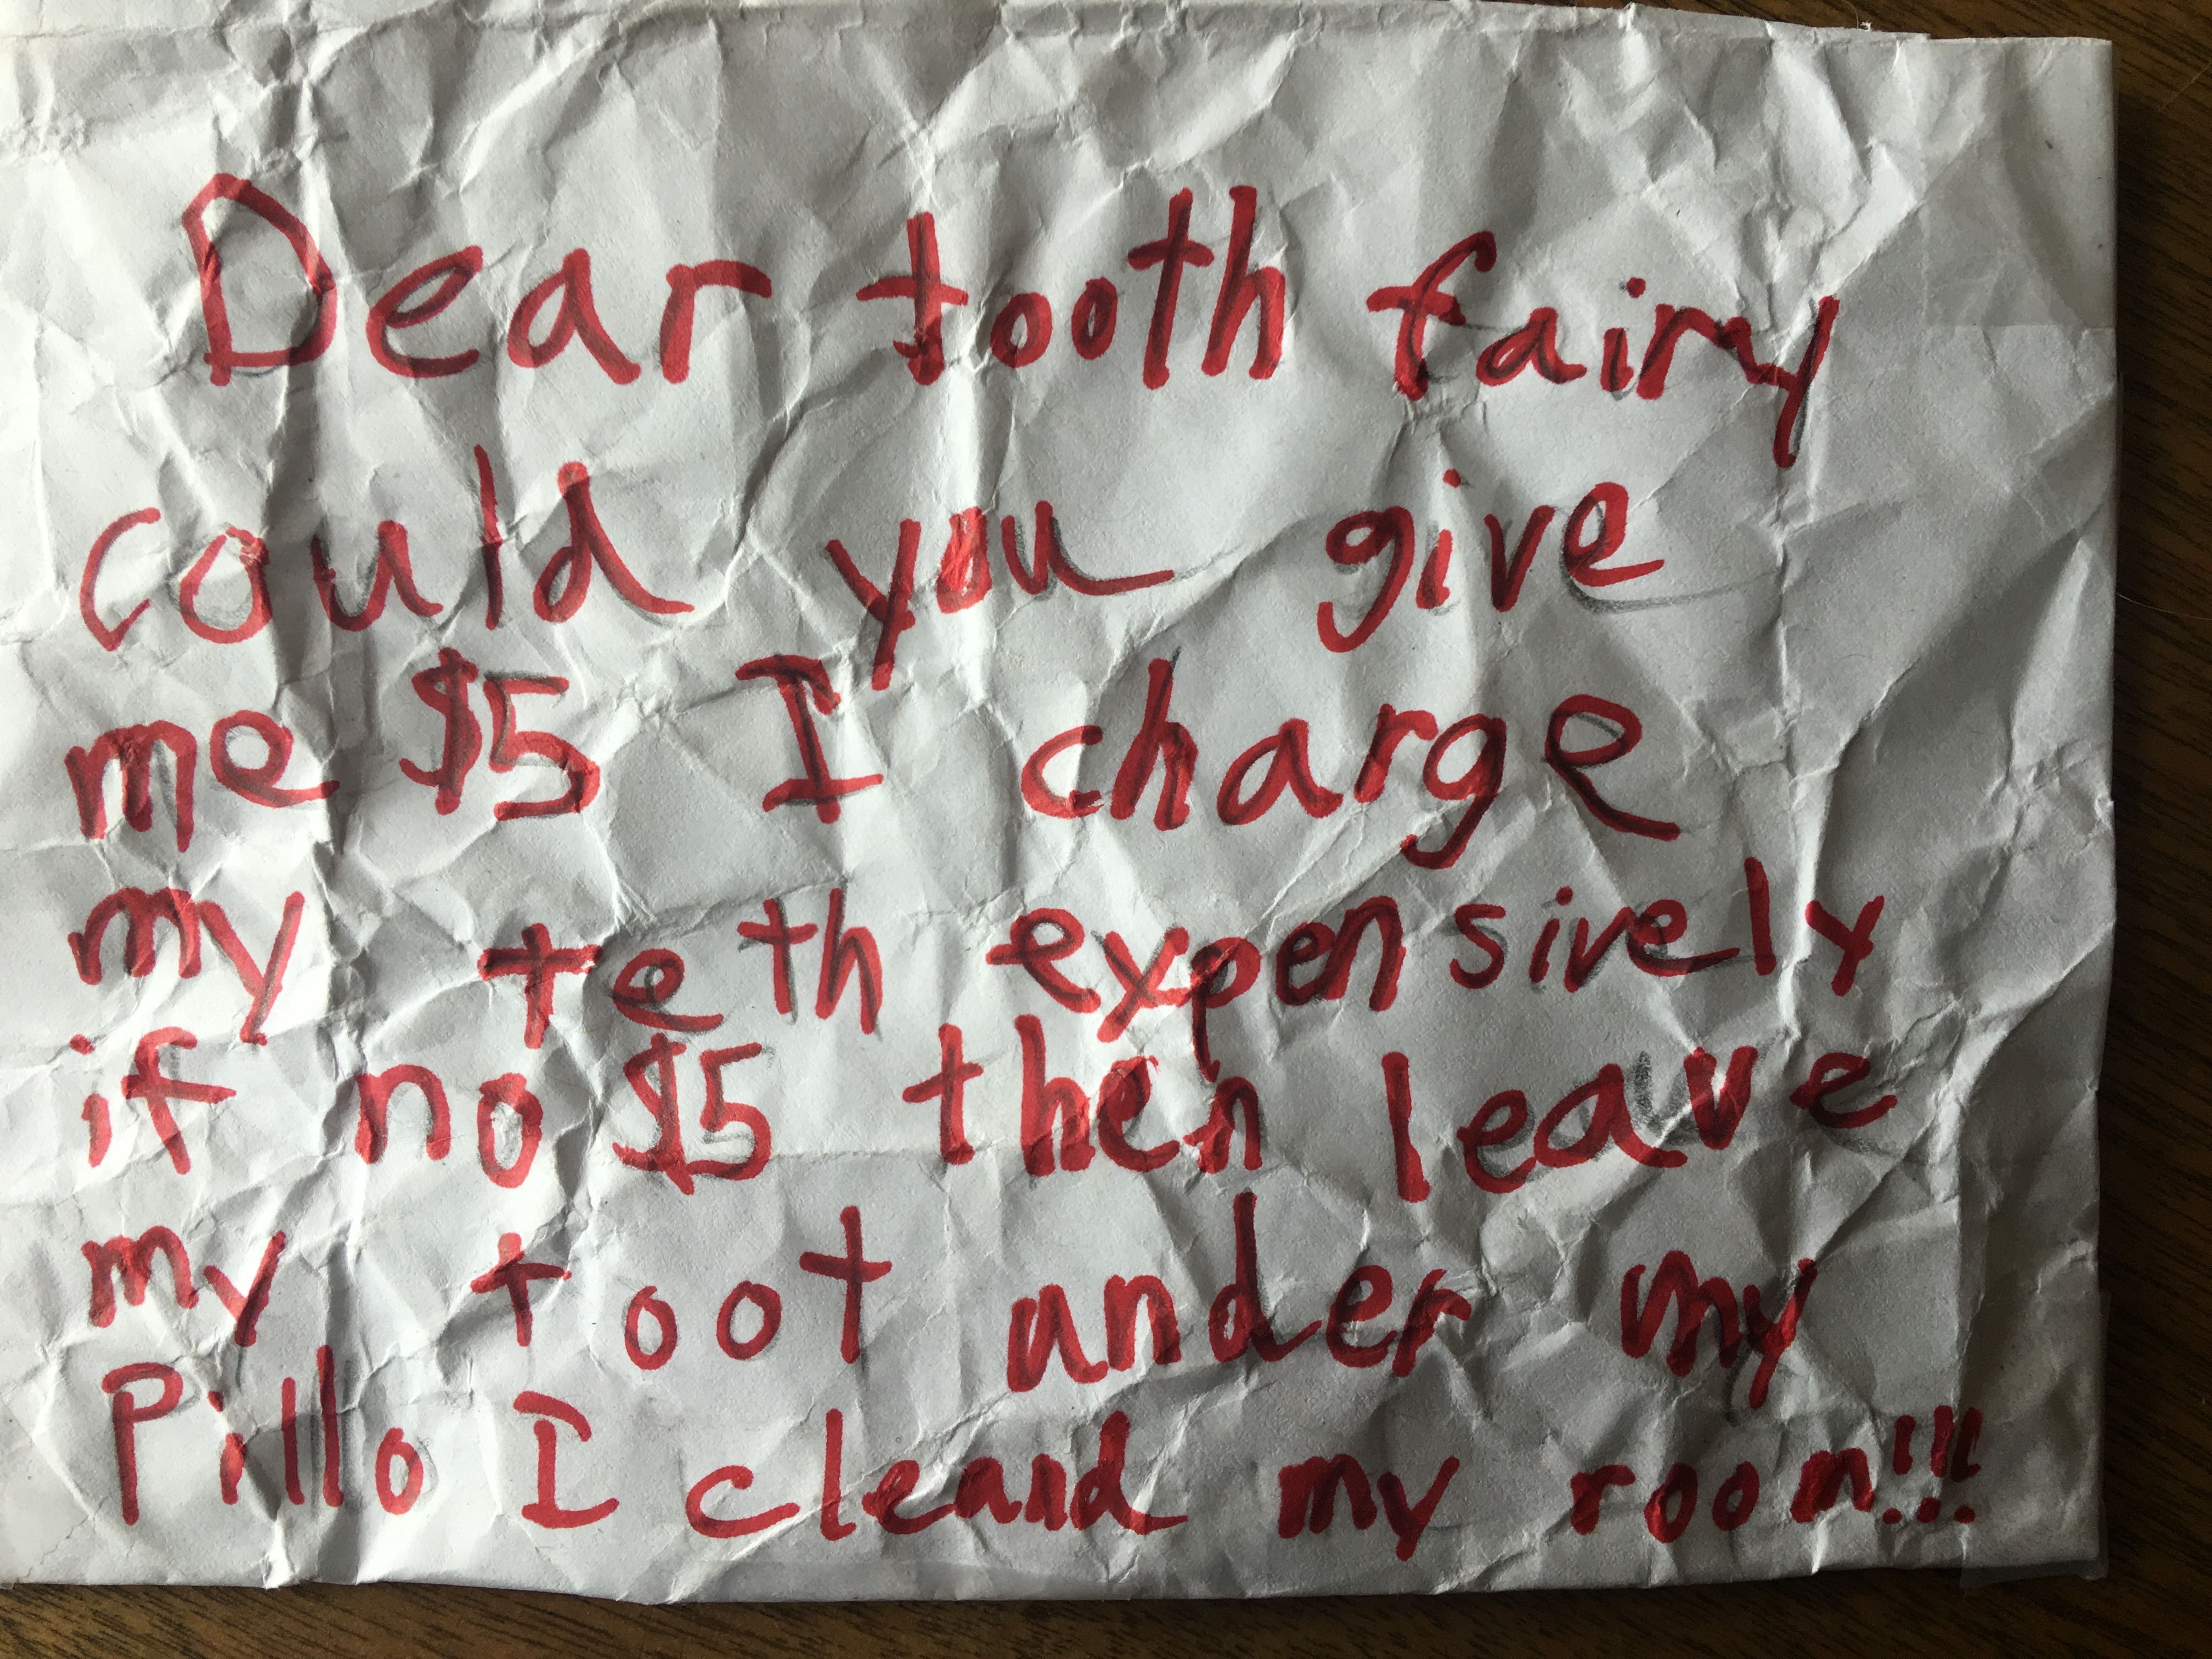 Dear tooth fairy
could you give
me $5 I charge
my teth expensively
if no $5 then leave
my toot under my
Pillo I cleand my room!!!